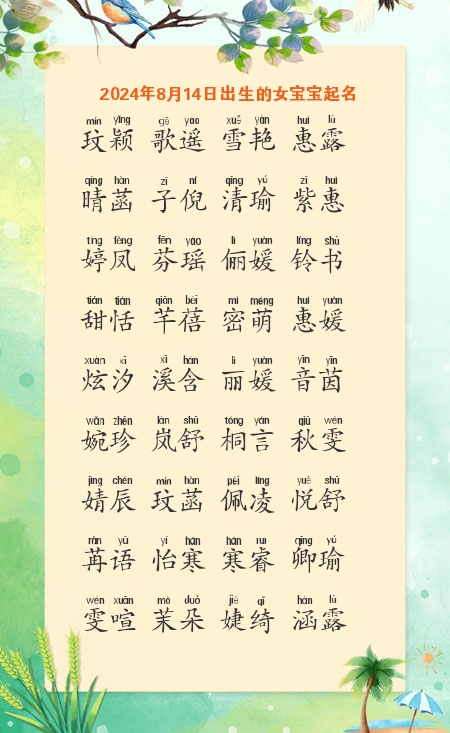 2024年8月14日出生的女宝宝起名
mín yǐng gē yáo xuě yàn huì lù
玟颖 歌遥 雪艳 惠露
qíng hàn zǐ ní qīng yú zǐ huì
晴菡 子倪 清瑜 紫惠
tíng fèng fēn yáo lì yuàn líng shū
婷凤 芬瑶 俪媛 铃书
tián tián qiān bèi mì méng huì yuàn
甜恬 芊蓓 密萌 惠媛
xuàn xī xī hán lì yuàn yīn yīn
炫汐 溪含 丽媛 音茵
wǎn zhēn lán shū tóng yán qiū wén
婉珍 岚舒 桐言 秋雯
jìng chén mín hàn pèi líng yuè shū
婧辰 玟菡 佩凌 悦舒
rǎn yǔ yí hán hán ruì qīng yú
苒语 怡寒 寒睿 卿瑜
wén xuān mò duǒ jié qǐ hán lù
雯喧 茉朵 婕绮 涵露